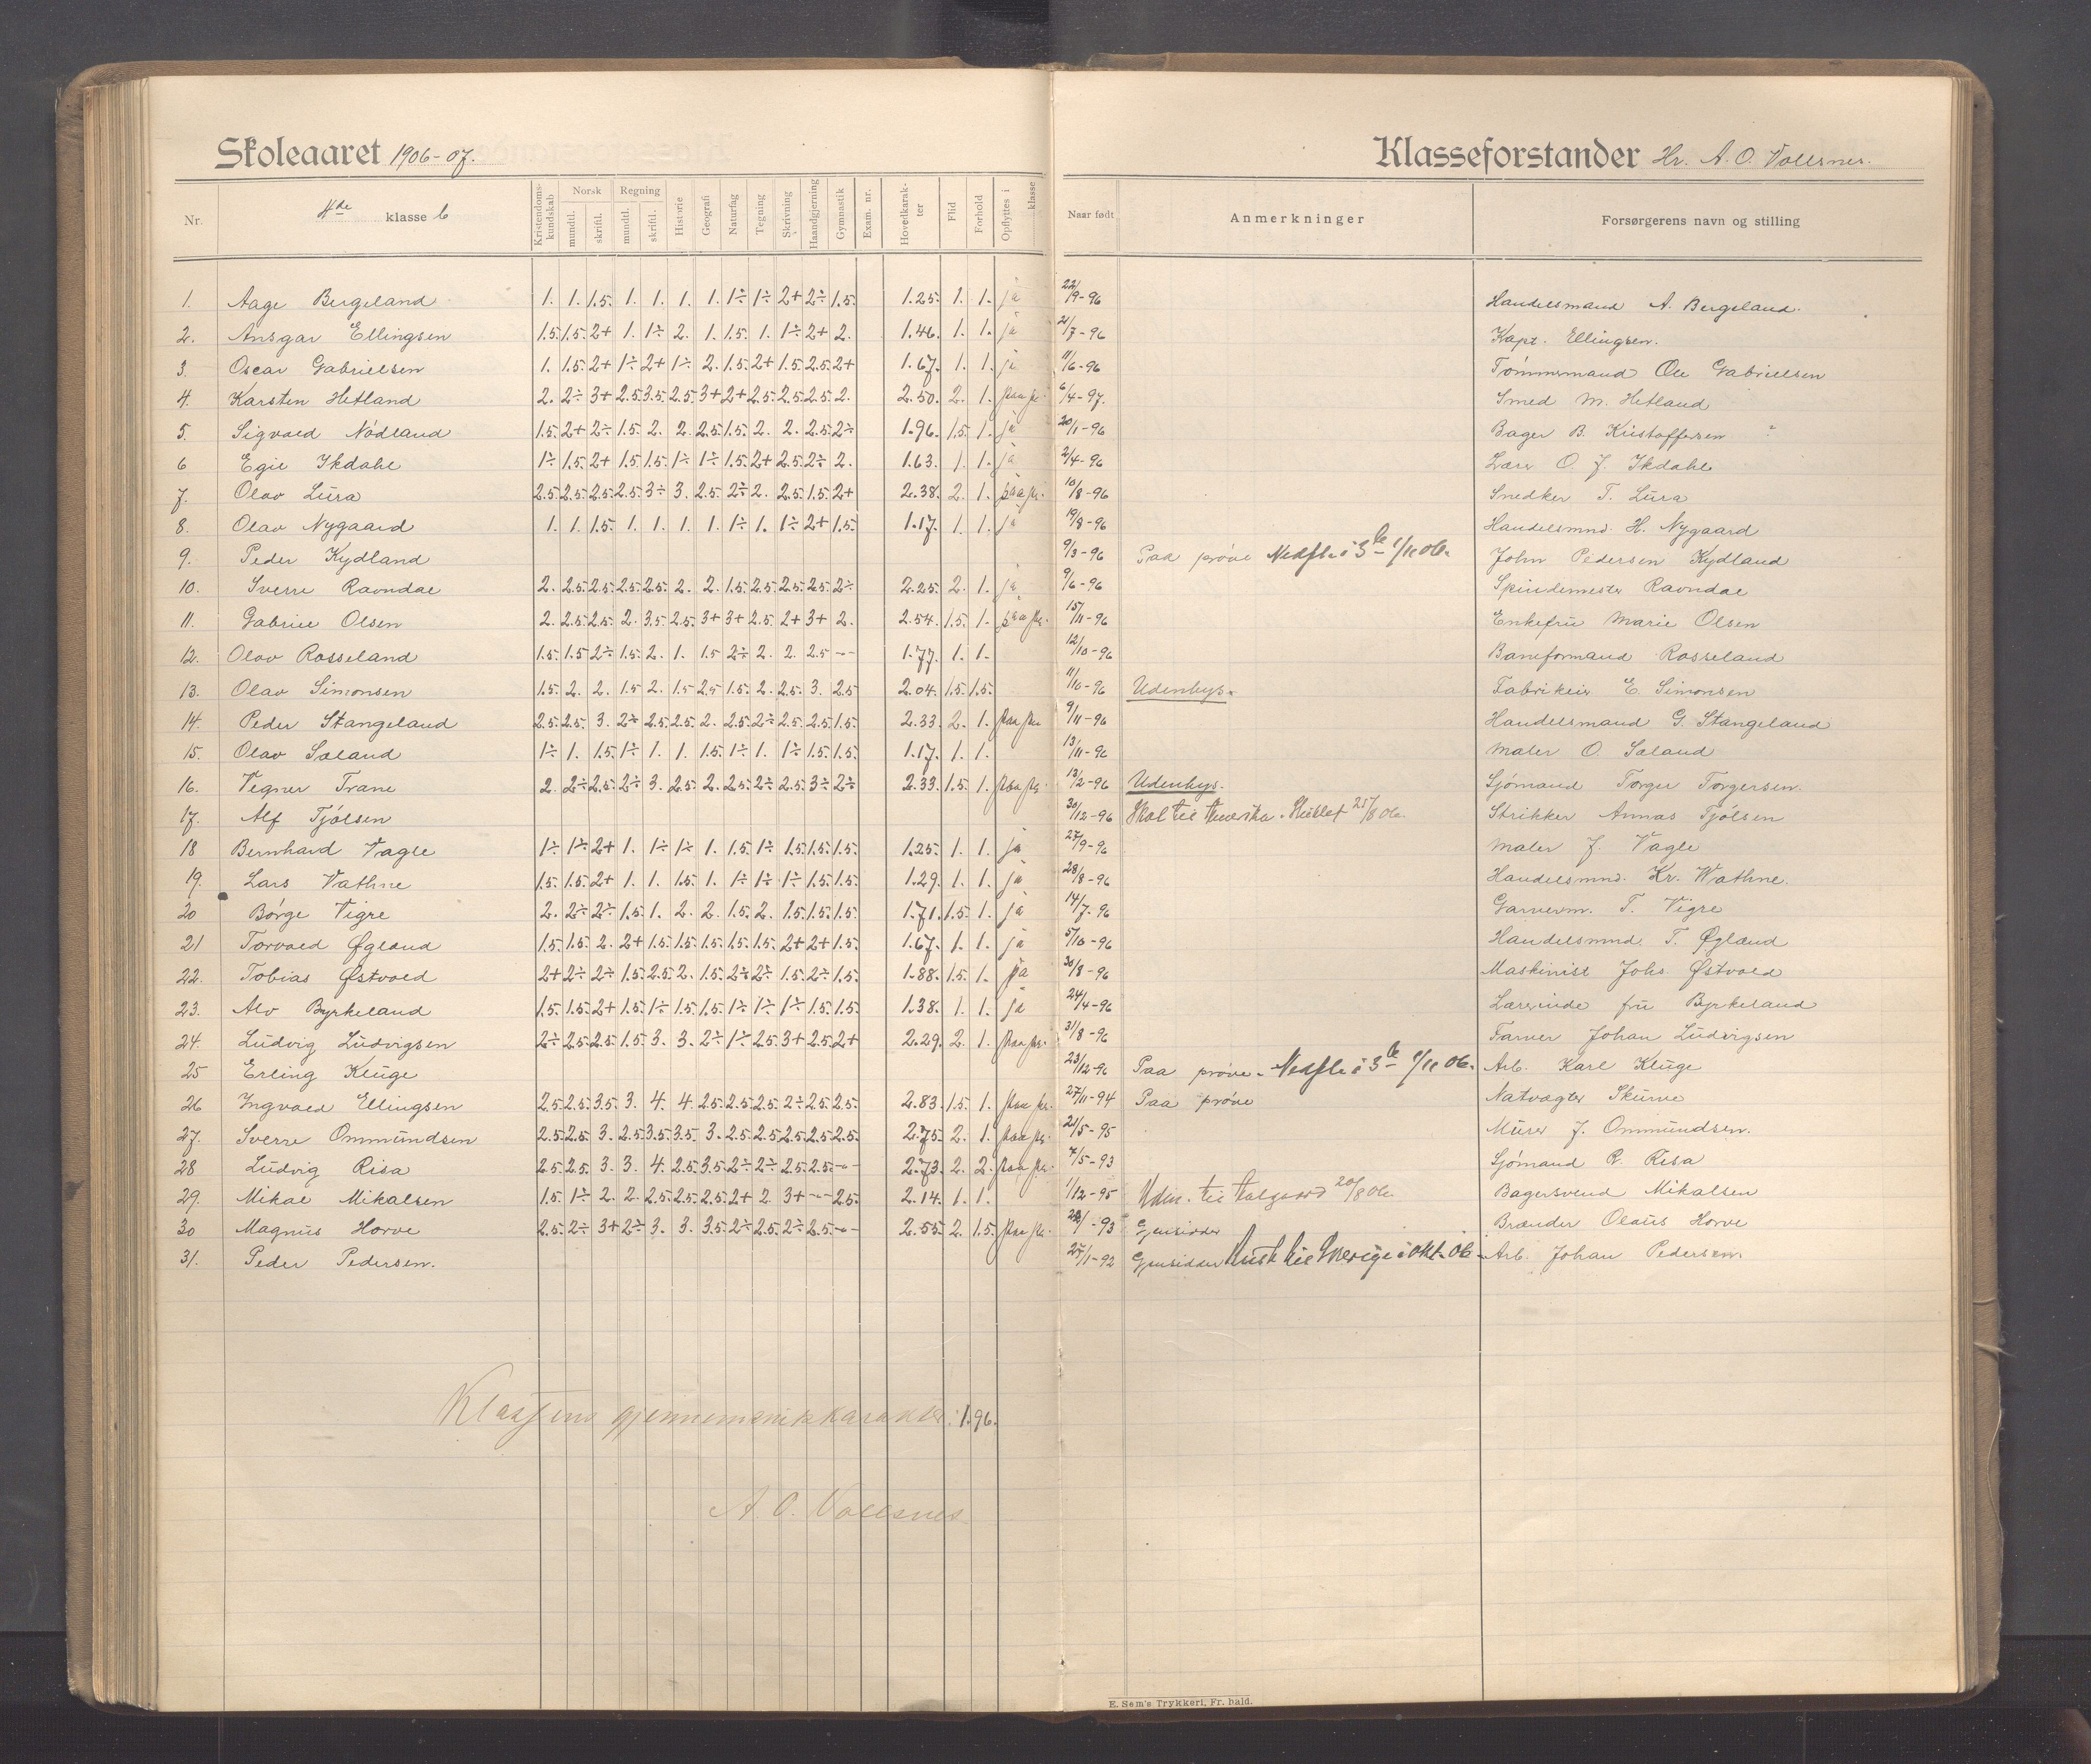 Skoleaaret 1906-07.
Klasseforstander Hr. A. O. Vollsnes.
Nr. 4de klasse b Kristendomskundskab Norsk mundtl. skriftl. Regning mundtl. skriftl. Historie Geografi Naturfag Tegning Skrivning Haandgjerning Gymnastik Exam. nr. Hovedkarakter Flid Forhold Opflyttes i klasse Naar født Anmerkninger Forsørgerens navn og stilling
1. Aage Bergeland 1. 1. 1.5. 1. 1. 1. 1. 1÷ 1÷ 2+ 2÷ 1.5. 1.25. 1. 1. ja 22/9-96 Handelsmand A. Bergeland.
2. Ansgar Ellingsen 1.5. 1.5. 2+ 1. 1÷ 2. 1. 1.5. 1. 1÷ 2+ 2. 1.46. 1. 1. ja 21/7-96 Kapt. Ellingsen.
3. Oscar Gabrielsen 1. 1.5. 2+ 1÷ 2+ 1÷ 2. 1.5. 2+ 1.5. 2.5. 2+ 1.67. 1. 1. ja 11/6-96 Tømmermand Ole Gabrielsen
4. Karsten Hetland 2. 2÷ 3+ 2.5. 3.5. 2.5. 3+ 2+ 2.5. 2.5. 2.5. 2. 2.50. 2. 1. paa pr. 6/4-97. Smed M. Hetland
5. Sigvald Nødland 1.5. 2+ 2÷ 1.5. 2. 2. 2.5. 1.5. 2. 2. 2.5. 2÷ 1.96. 1.5. 1. ja 20/1-96 Bager B. Kristoffersen
6 Egil Ikdahl 1÷ 1.5. 2+ 1.5. 1.5. 1÷ 1÷ 1.5. 2+ 2.5. 2÷ 2. 1.63. 1. 1. ja 2/4-96 Lærer O. J. Ikdahl
7. Olav Lura 2.5. 2.5. 2.5. 2.5. 3÷ 3. 2.5. 2÷ 2. 2.5. 1.5. 2+ 2.38. 2. 1. paa pr. 10/8-96 Snedker T. Lura
8. Olav Nygaard 1. 1. 1.5. 1. 1. 1. 1. 1÷ 1. 1÷ 2+ 1.5. 1.17. 1. 1. ja 19/8-96 Handelsmnd. H. Nygaard
9. Peder Kydland 9/3-96 Paa prøve Nedfl. i 3 kl 1/11 06. John Pedersen Kydland
10. Sverre Ravndal 2. 2.5. 2.5. 2.5. 2.5. 2. 2. 1.5. 2.5. 2.5. 2.5. 2÷ 2.25. 2. 1. ja 9/6-96 Spindemester Ravndal
11. Gabriel Olsen 2. 2.5. 2.5. 2. 3.5. 2.5. 3+ 3+ 2.5. 2+ 3+ 2. 2.54. 1.5. 1. paa pr. 15/11-96 Enkefru Marie Olsen
12. Olav Rosseland 1.5. 1.5 2÷ 1.5. 2. 1. 1.5 2÷ 2. 2. 2.5 -- 1.77. 1. 1. 12/10-96 Baneformand Rosseland
13. Olav Simonsen 1.5. 2. 2. 1.5 2. 1.5 2.5 1.5. 2. 2.5. 3. 2.5 2.04. 1.5. 1.5. 11/10-96 Udenbys. Fabrikeier E. Simonsen
14. Peder Stangeland 2.5. 2.5. 3. 2÷ 2.5. 2.5. 2. 2.5. 2÷ 2.5. 2.5. 1.5. 2.33. 2. 1. paa pr. 9/11-96 Handelsmand G. Stangeland
15. Olav Søland 1÷ 1. 1.5. 1÷ 1. 1. 1.5. 1÷ 1. 1÷ 1.5. 1.5. 1.17. 1. 1. 13/11-96 Maler O. Søland
16. Vegner Trane 2. 2÷ 2.5. 2÷ 3. 2.5. 2. 2.5. 2÷ 2.5. 3÷ 2÷ 2.33. 1.5. 1. paa pr. 13/2-96 Udenbys. Sjømand Torger Torgersen.
17. Alf Tjølsen 30/12-96 Skal til Amerika. Sluttet 25/8 06. Strikker Annas Tjølsen
18 Bernhard Vagle 1÷ 1÷ 2+ 1. 1÷ 1÷ 1. 1.5. 1÷ 1.5. 1.5. 1.5. 1.25. 1. 1. ja 27/9-96 Maler J. Vagle
19. Lars Vathne 1.5. 1.5. 2+ 1. 1. 1.5. 1. 1÷ 1÷ 1÷ 1.5. 1.5. 1.29. 1. 1. ja 28/8-96 Handelsmnd. Kr. Wathne.
20 Børge Vigre 2. 2÷ 2÷ 1.5. 1. 2. 2. 1.5. 2. 1.5. 1.5. 1.5. 1.71. 1.5. 1. ja 14/7-96 Garverm. T. Vigre
21 Torvald Øgland 1.5. 1.5. 2. 2+ 1.5. 1.5. 1.5. 1.5. 1.5. 2+ 2+ 1.5. 1.67. 1. 1. ja 5/10-96 Handelsmnd. T. Øgland
22. Tobias Østvold 2+ 2÷ 2÷ 1.5. 2.5. 2. 1.5. 2÷ 2÷ 1.5. 2÷ 1.5. 1.88. 1.5. 1. ja 30/8-96 Maskinist Johs Østvold
23. Alv Byrkeland 1.5. 1.5. 2+ 1.5. 1÷ 1.5. 1.5. 1÷ 1÷ 1÷ 1.5. 1.5. 1.38. 1. 1. ja 24/4-96 Lærerinde fru Byrkeland
24. Ludvig Ludvigsen 2÷ 2.5. 2.5. 1.5. 3. 3. 2÷ 1÷ 2.5. 3+ 2.5. 2+ 2.29. 2. 1. paa pr. 31/8-96 Farver Johan Ludvigsen
25 Erling Kluge 23/12-96 Paa prøve. Nedfl. i 3 kl 1/11 06. Arb. Karl Kluge
26 Ingvald Ellingsen 2.5. 2.5. 3.5. 3. 4. 4. 2.5. 2.5. 2.5. 2÷ 2.5. 2.5. 2.83. 1.5. 1. paa pr. 27/11-94 Paa prøve Natvægter Skurve
27. Sverre Ommundsen 2.5. 2.5. 3. 2.5. 3.5. 3.5. 3. 2.5. 2.5. 2.5. 2.5. 2.5. 2.75. 2. 1. paa pr. 21/5-95 Murer J. Ommundsen.
28 Ludvig Risa 2.5. 2.5. 3. 3. 4. 2.5. 3.5. 2÷ 2÷ 2.5. 2.5. -- 2.73. 2. 2. paa pr. 7/5-93 Sjømand R. Risa
29. Mikal Mikalsen 1.5. 1÷ 2. 2. 2.5. 2.5. 2.5. 2+ 2. 3+ -- 2.5. 2.14. 1. 1. 1/12-95 Udm. til Aalgaard 20/8 06. Bagersvend Mikalsen
30 Magnus Horve 2.5. 2÷ 3+ 2÷ 3. 3. 3.5. 2÷ 2.5. 2÷ 2.5. -- 2.55. 2. 1.5. paa pr. -93 Gjensidder Brænder Olaus Horve
31. Peder Pedersen. 25/1-92 Gjensidder til Sverige i okt. 06 Arb. Johan Pedersen.
Klassens gjennemsnitskarakter: 1.96.
A. O. Vollsnes
E. Sem's Trykkeri, Fr. hald.